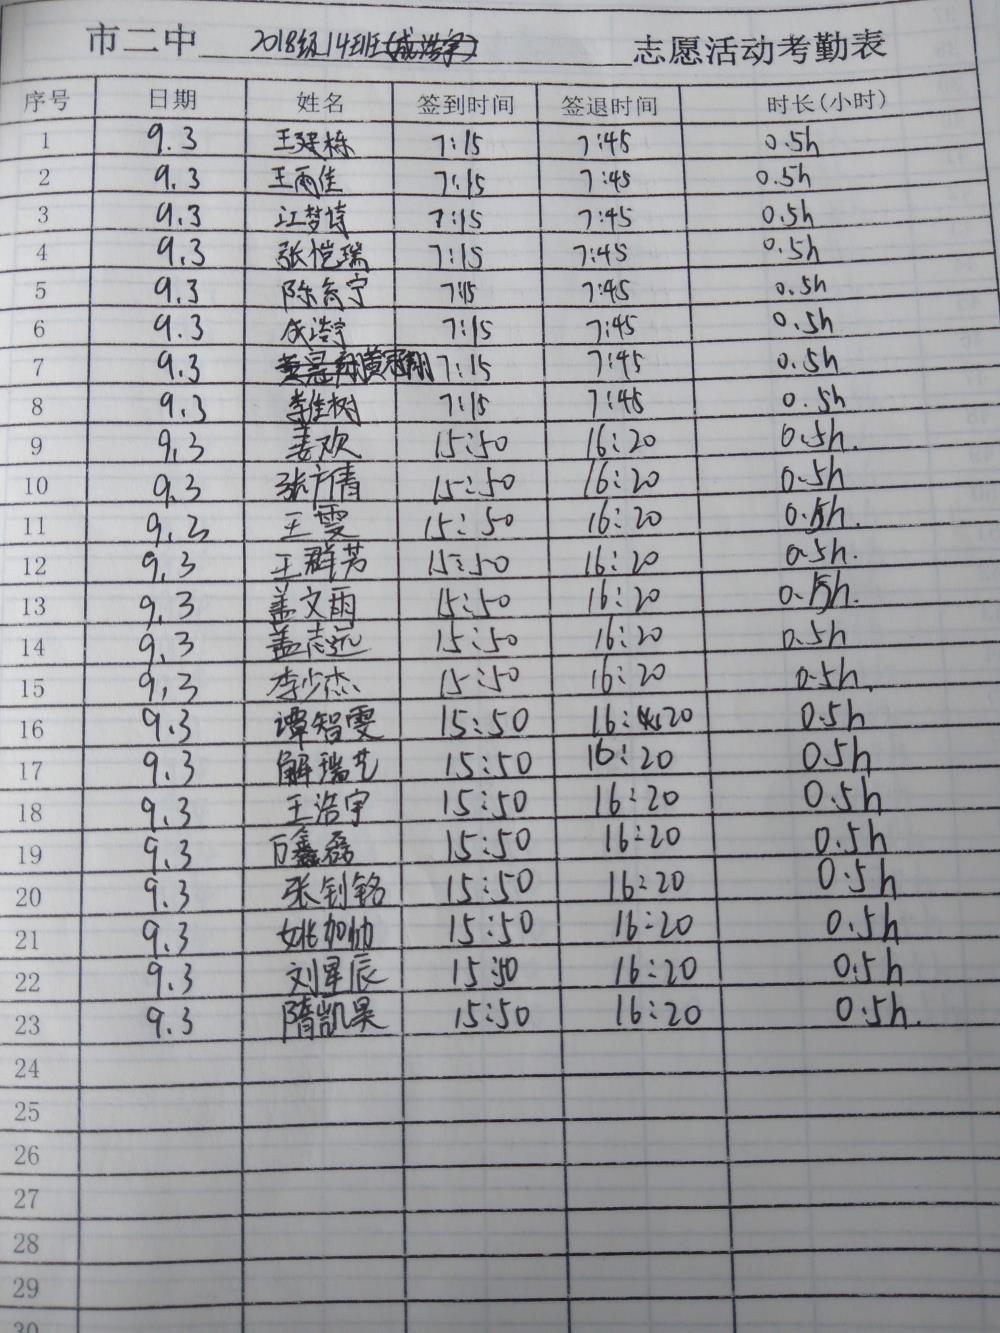 市二中 2018级14班(成浩宇) 志愿活动考勤表
序号 日期 姓名 签到时间 签退时间 时长(小时)
1 9.3 王建栋 7:15 7:45 0.5h
2 9.3 王雨佳 7:15 7:45 0.5h
3 9.3 江梦诗 7:15 7:45 0.5h
4 9.3 张恺瑞 7:15 7:45 0.5h
5 9.3 陈宇 7:15 7:45 0.5h
6 9.3 成浩宇 7:15 7:45 0.5h
7 9.3 黄冠翔 7:15 7:45 0.5h
8 9.3 李佳树 7:15 7:45 0.5h
9 9.3 姜欢 15:50 16:20 0.5h.
10 9.3 张广倩 15:50 16:20 0.5h
11 9.3 王雯 15:50 16:20 0.5h.
12 9.3 王群芳 15:50 16:20 0.5h.
13 9.3 盖文雨 15:50 16:20 0.5h.
14 9.3 盖志远 15:50 16:20 0.5h
15 9.3 李少杰 15:50 16:20 0.5h.
16 9.3 谭智雯 15:50 16:20 0.5h
17 9.3 解瑞艺 15:50 16:20 0.5h
18 9.3 王浩宇 15:50 16:20 0.5h
19 9.3 万鑫磊 15:50 16:20 0.5h
20 9.3 张钊铭 15:50 16:20 0.5h
21 9.3 姚加帅 15:50 16:20 0.5h
22 9.3 刘星辰 15:50 16:20 0.5h
23 9.3 隋凯昊 15:50 16:20 0.5h.
24
25
26
27
28
29
30